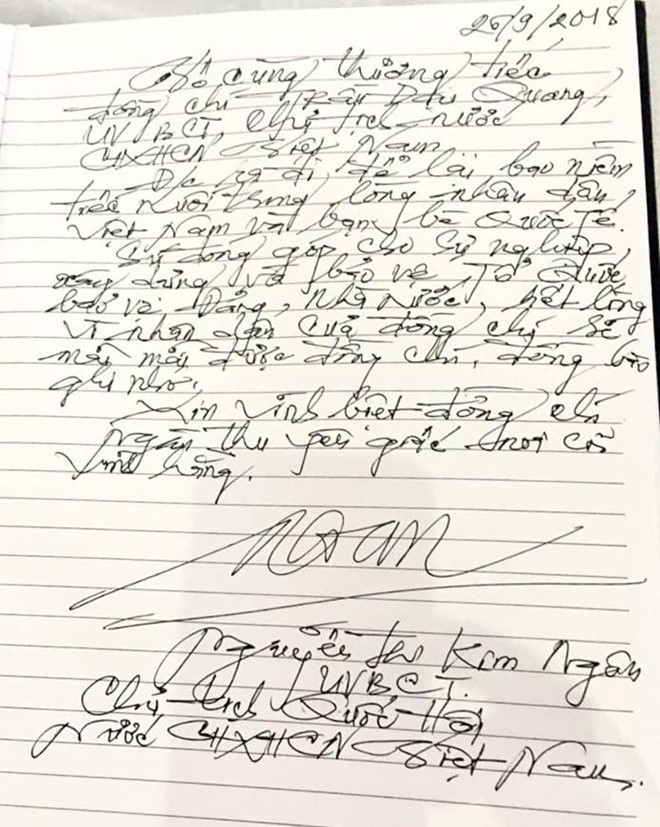 26/9/2018
Vô cùng thương tiếc
đồng chí Trần Đại Quang,
UV BCT, Chủ tịch nước
CHXHCN Việt Nam.
Đ/c ra đi, để lại bao niềm
tiếc nuối trong lòng nhân dân,
Việt Nam và bạn bè Quốc tế.
Sự đóng góp cho sự nghiệp,
xây dựng và bảo vệ Tổ Quốc,
bảo vệ Đảng, Nhà nước, hết lòng
vì nhân dân của đồng chí sẽ
mãi mãi được đồng chí, đồng bào
ghi nhớ.
Xin vĩnh biệt đồng chí
Ngàn thu yên giấc nơi cõi
vĩnh hằng.
Ngân
Nguyễn Thị Kim Ngân
UVBCT.
Chủ tịch Quốc Hội
Nước CHXHCN Việt Nam.